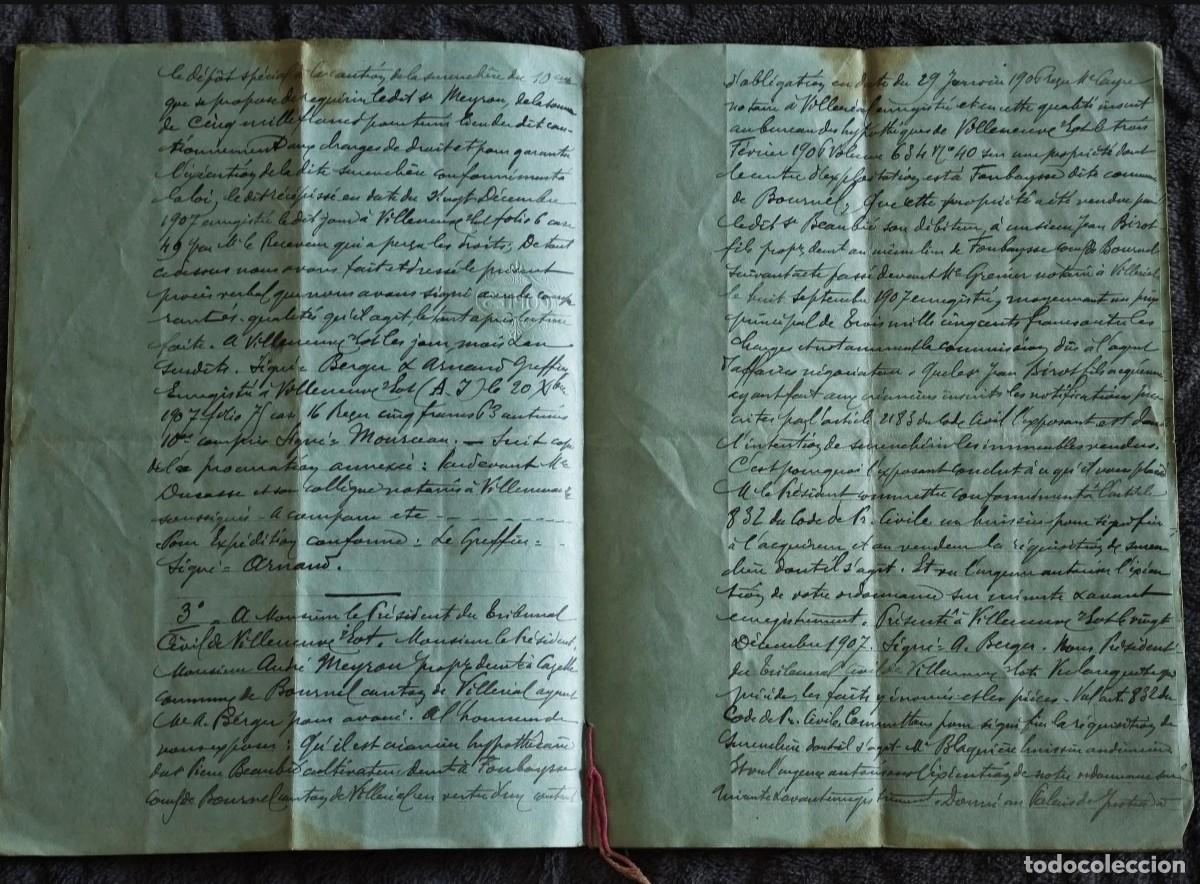 le dépôt spécial à la caution de la surenchère du 10eme
que se propose de requérir ledit sr Meyron, de la somme
de Cinq mille francs pour tenir lieu du dit cau-
tionnement aux charges de droit et pour garantir
l'exécution de la dite surenchère conformément à
la loi, le dit récépissé en date du Vingt Décembre
1907 enregistré le dit jour à Villeneuve s/Lot folio 6 case
49 par Mr le Receveur qui a perçu les droits. De tout
ce dessus nous avons fait et dressé le présent
procès verbal que nous avons signé avec le compa-
rant ès-qualités qu'il agit, le tout après lecture
faite. A Villeneuve s/Lot les jour, mois et an
susdits. Signé = Berger & Arnaud Greffier
Enregistré à Villeneuve s/Lot (A. J) le 20 Xbre
1907 folio case 16 Reçu cinq francs 63 centimes
10mes compris Signé = Mourceau. — Suit copie
de la procuration annexée : Pardevant Me
Ducasse et son collègue notaires à Villeneuve
soussignés - A comparu etc - - - - - - - -
Pour Expédition conforme : Le Greffier =
Signé = Arnaud.
3° - A Monsieur le Président du Tribunal
Civil de Villeneuve s/Lot. Monsieur le Président,
Monsieur André Meyron propre demt à Cazelle
commune de Bournel canton de Villeréal ayant
Me A. Berger pour avoué. A l'honneur de
vous exposer : Qu'il est créancier hypothécaire
du sr Pierre Beaubié cultivateur demt à Fonbaysse
comne de Bournel canton de Villeréal en vertu d'un contrat
d'obligation en date du 29 Janvier 1906 Reçu Me
notaire à Villeréal enregistré et en cette qualité inscrit
au bureau des hypothèques de Villeneuve s/Lot le trois
Février 1906 Volume 634 No 40 sur une propriété dont
le centre d'exploitation est à Fonbaysse dite commune
de Bournel, Que cette propriété a été vendue par
ledit sr Beaubié son débiteur à un sieur Jean Birot
fils propre demt au même lieu de Fonbaysse comne de Bournel
suivant acte passé devant Me Grenier notaire à Villeréal
le huit septembre 1907 enregistré, moyennant un prix
principal de Trois mille cinq cents francs outre les
charges et notamment la commission due à l'agent
d'affaires négociateur. Que les Jean Birot fils acquéreur
ayant fait aux créanciers inscrits les notifications pres-
crites par l'article 2183 du Code Civil l'exposant est dans
l'intention de surenchérir les immeubles vendus.
C'est pourquoi l'exposant conclut à ce qu'il vous plaise
Mr le Président commettre conformément à l'article
832 du Code de Pr. Civile un huissier pour signifier
à l'acquéreur et au vendeur la réquisition de suren-
chère dont il s'agit. Et vu l'urgence autoriser l'exécu-
tion de votre ordonnance sur minute & avant
enregistrement. Présenté à Villeneuve s/Lot le vingt
Décembre 1907. Signé = A. Berger. Nous Président
du Tribunal civil de Villeneuve s/Lot Vu la requête qui
précède, les faits y énoncés et les pièces. Vu l'art. 832 du
Code de Pr. Civile. Committons pour signifier la réquisition de
Surenchère dont il s'agit Me Blaquière huissier audiencier
Et vu l'urgence autorisons l'exécution de notre ordonnance sur
minute & avant enregistrement. Donné au Palais de Justice à
todocoleccion